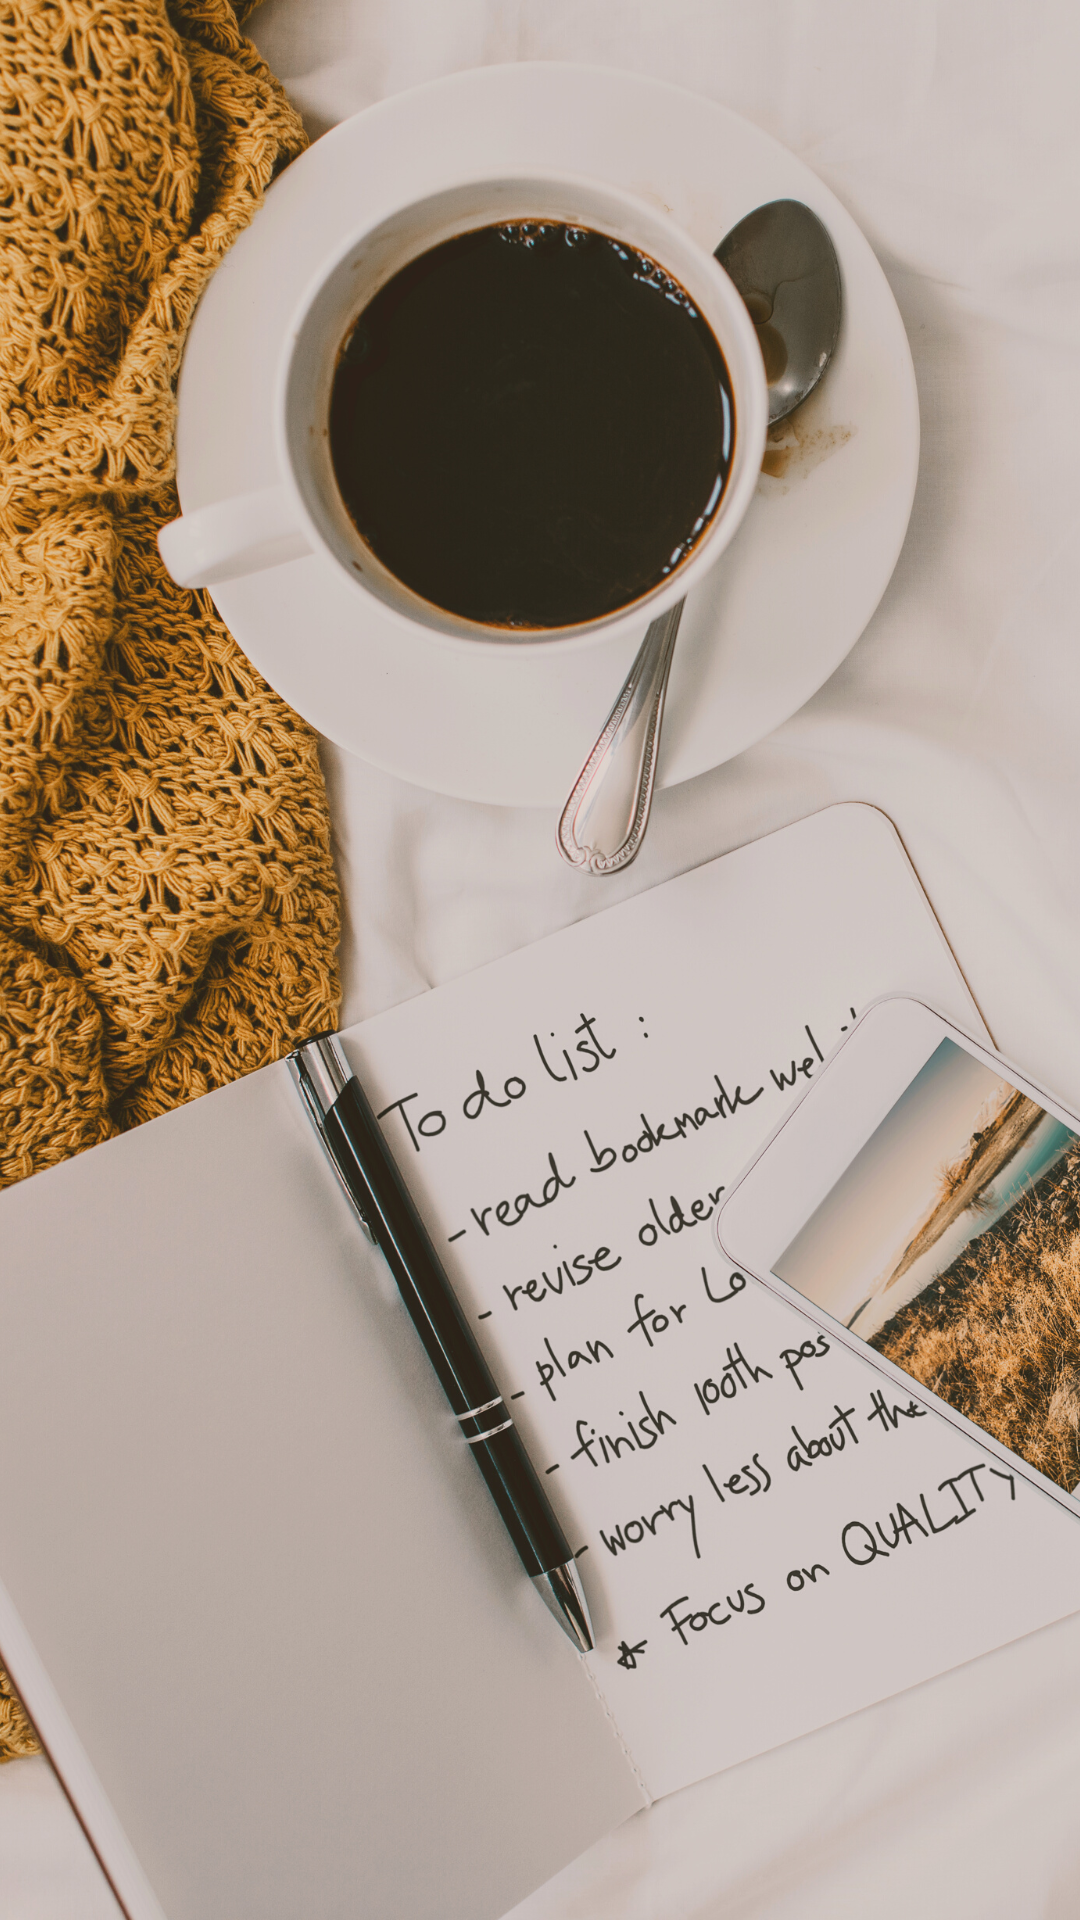 To do list :
- read bookmark
- revise older
- plan for Lo
- finish 100th pos
- worry less about the
* Focus on QUALITY